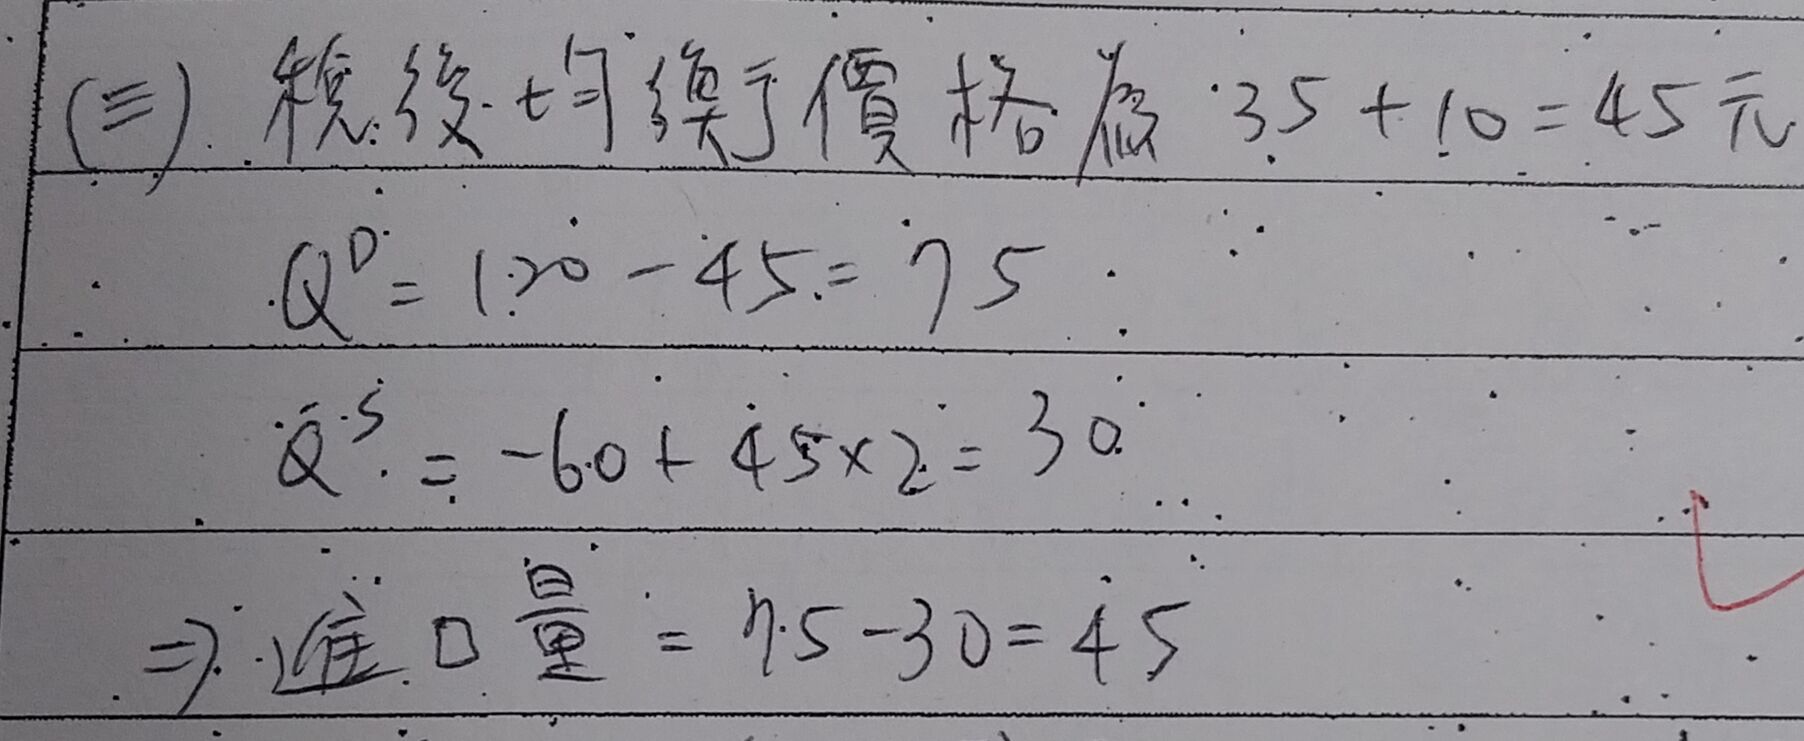 (三) 稅後均衡價格為 35 + 10 = 45元
Q^D = 120 - 45 = 75
Q^S = -60 + 45 × 2 = 30
⇒ 進口量 = 75 - 30 = 45